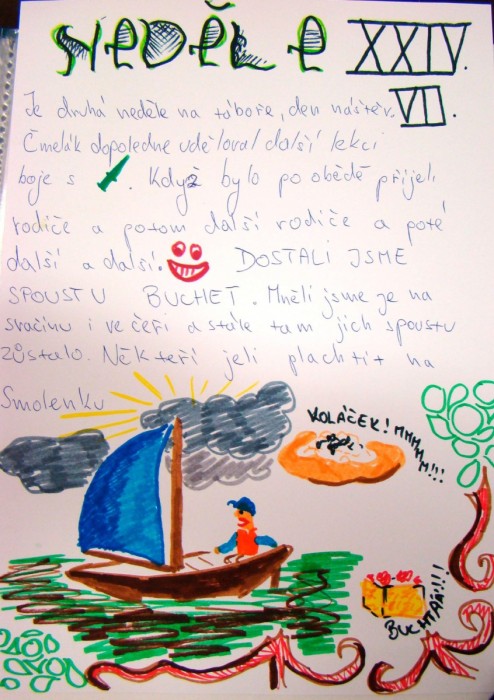 NEDĚLE XXIV.
VII.
Je druhá neděle na táboře, den návštěv.
Čmelák dopoledne uděloval další lekci
boje s . Když bylo po obědě přijeli
rodiče a potom další rodiče a poté
další a další.
DOSTALI JSME
SPOUSTU BUCHET. Mněli jsme je na
svačinu i večeři a stále tam jich spoustu
zůstalo. Někteří jeli plachtit na
Smolenku
KOLÁČEK! MMMMM!!!
BUCHTÁÁ!!!!